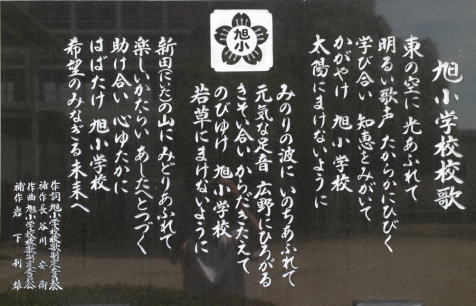 旭小学校校歌
東の空に 光あふれて
明るい歌声 たからかにひびく
学び合い 知恵をみがいて
かがやけ 旭小学校
太陽にまけないように
旭小
みのりの波に いのちあふれて
元気な足音 広野にひろがる
きそい合い からだきたえて
のびゆけ 旭小学校
若草にまけないように
新田にいどの山に みどりあふれて
楽しいかたらい あしたへとつづく
助け合い 心ゆたかに
はばたけ 旭小学校
希望のみなぎる未来へ
作詞 旭小学校校歌制定委員会
補作 長谷川安衛
作曲 旭小学校校歌制定委員会
補作 岩下利雄